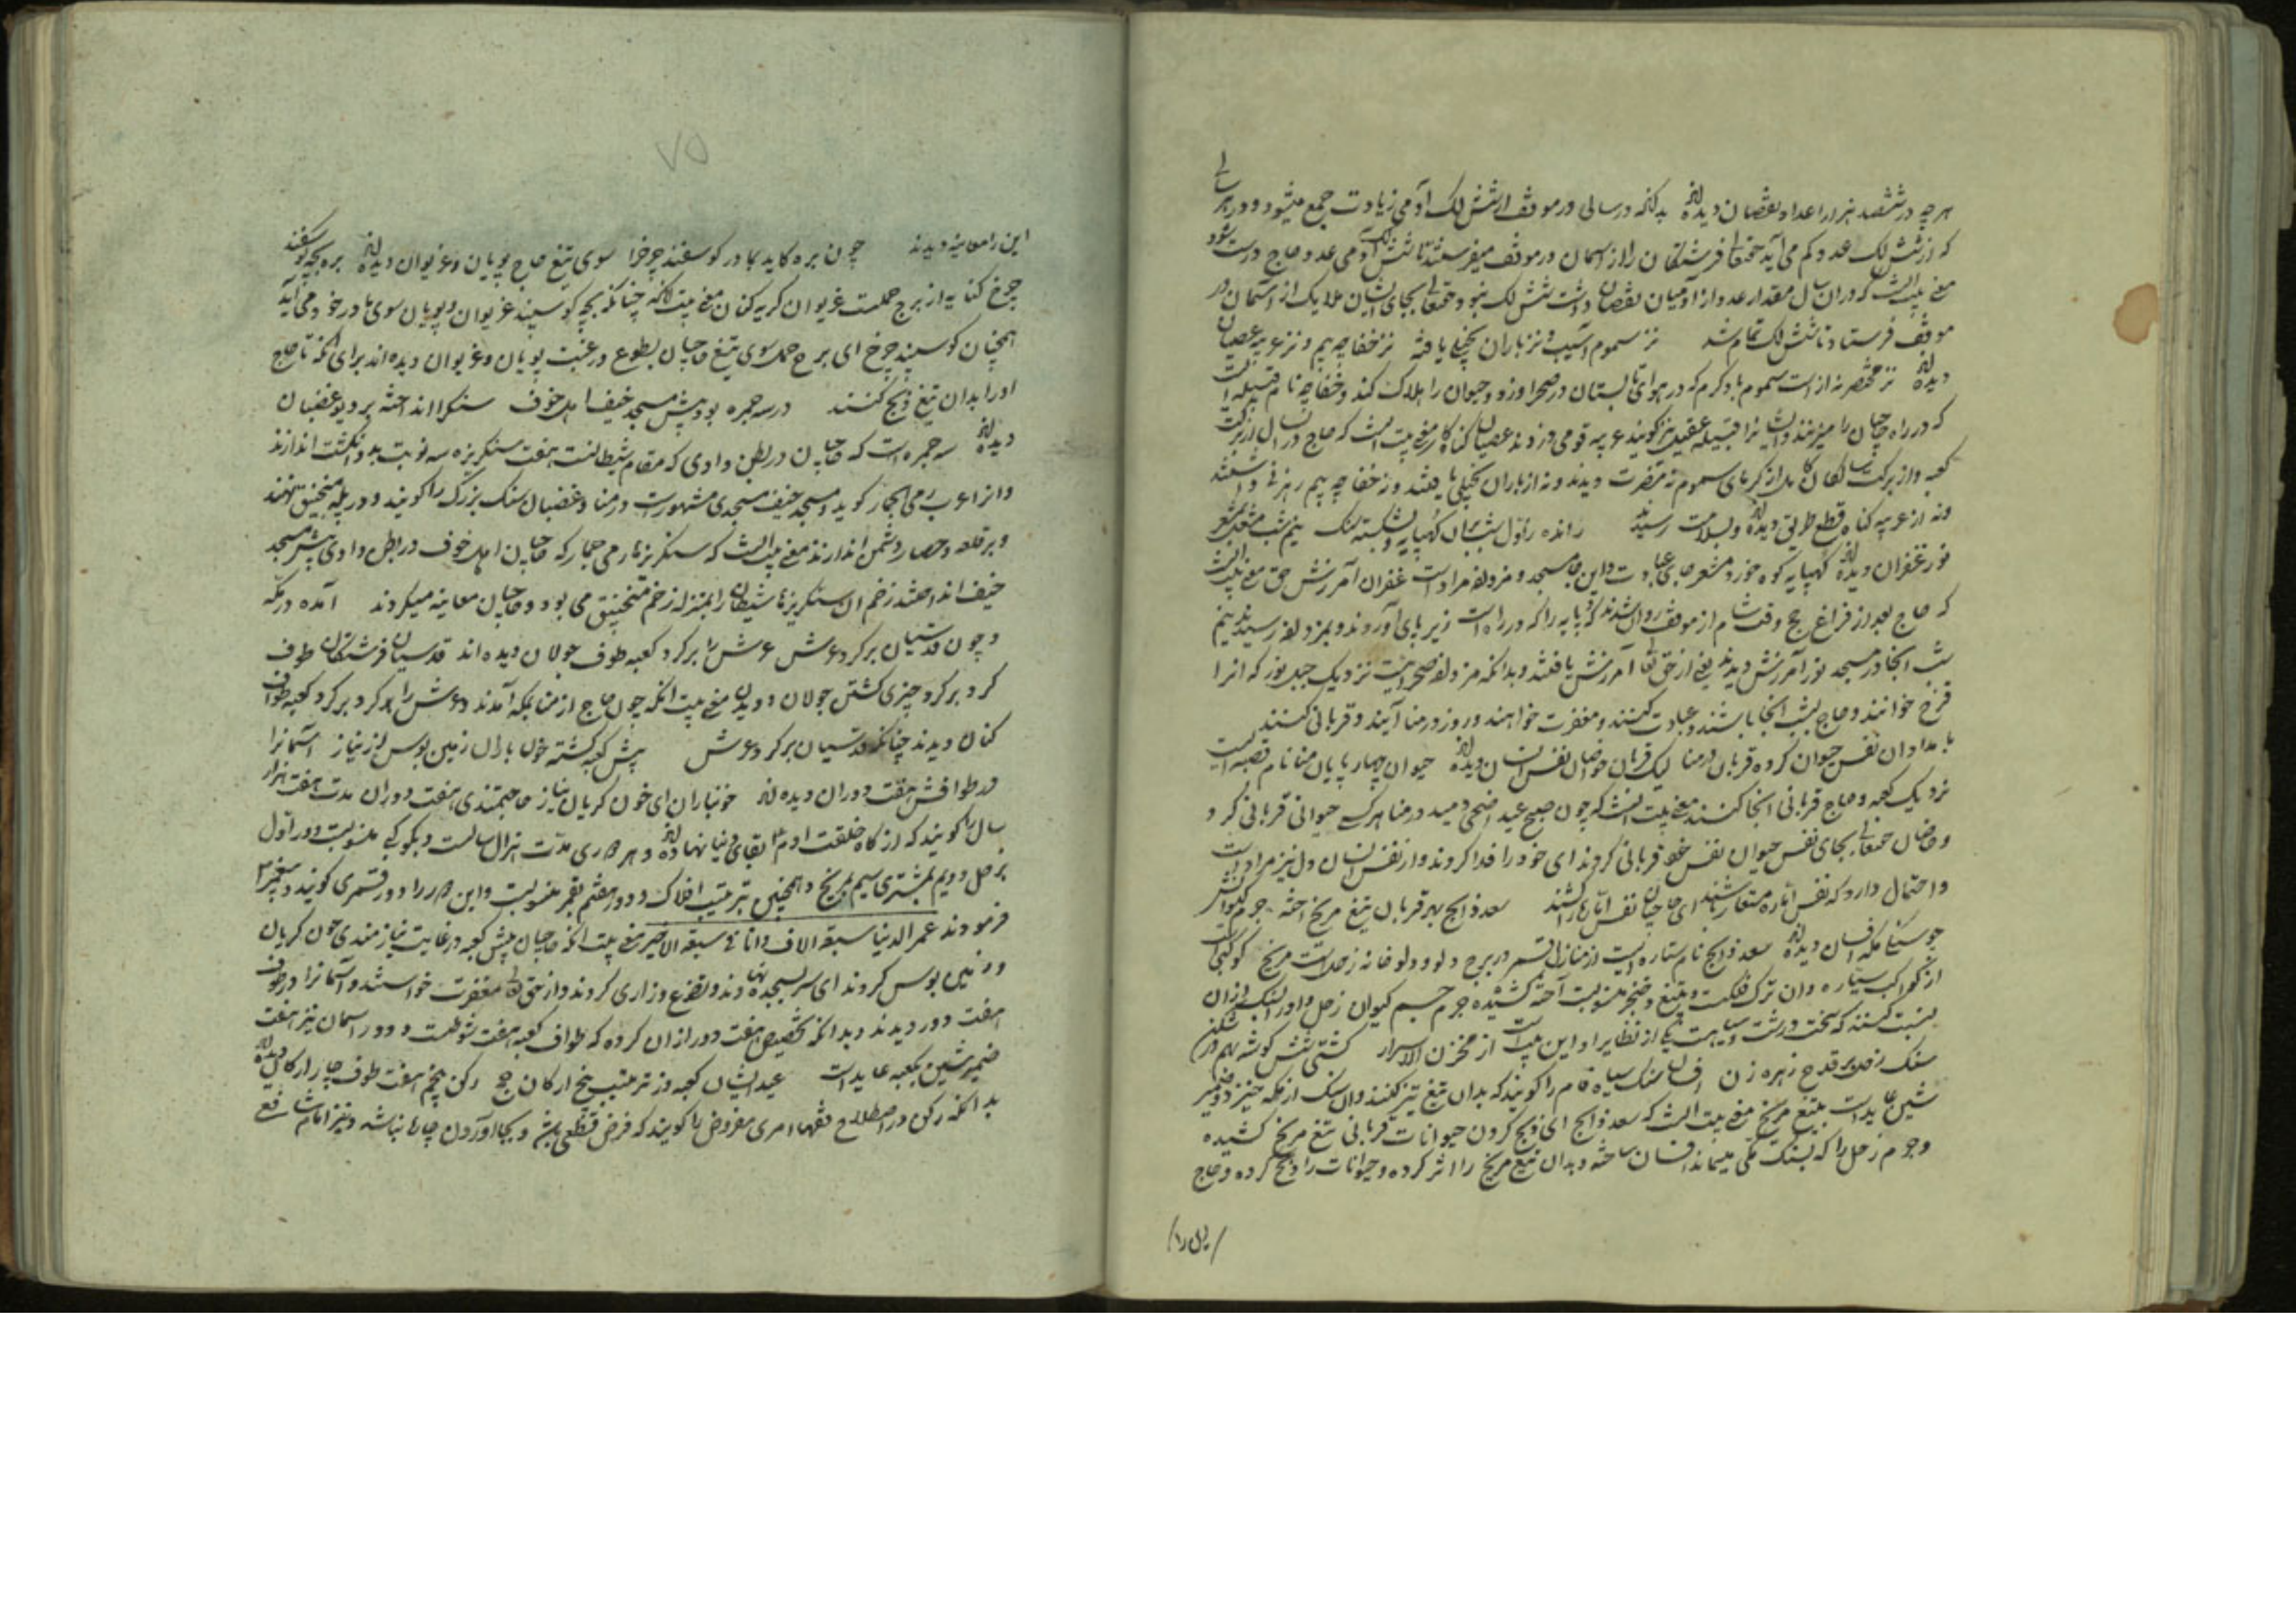 هرچه در ششصد هزار اعداد نقصان دیده‌اند بدانکه در سالی در موقف از شش لک آدمی زیادت جمع میشود و در هر سالی
که از شش لک عدد کم می آید حقتعالی فرشتگان را از آسمان در موقف میفرستد تا شش لک آدمی عدد حاج درست شود
معنی بیت آنست که در آن سال مقدار عدد از آدمیان نقصان داشت شش لک نبود و حقتعالی بجای ایشان ملایک از آسمان در
موقف فرستاد تا شش لک تمام شد نز سموم آسیب و نز باران بخیلی یافته نز خفاجه بیم و نز غزیه عصیان
دیده‌اند نز مختصر نه از است سموم باد گرم که در هوای تابستان در صحرا وزد و حیوان را هلاک کند و خفاجه نام قبیله ایست
که در راه حاجیان را میزنند و ایشان را قبیله عقیل نیز گویند غزیه قومی دزدند عصیان گناه کار معنی بیت آنست که حاج در آن سال از برکت
کعبه و از برکت سالکان کامل از گرمای سموم نه مضرت دیدند و نه از باران بخیلی یافتند و نه خفاجه بیم رهزنی داشتند
ونه از غزیه گناه قطع طریق دیده‌اند و بسلامت رسیدند رانده ز اول شب بر آن کُه‌پایه و بشکسته سنگ نیم شب مشعل بمشعر
نور غفران دیده‌اند کهپایه کوه خورد مشعر جای عبادت و این جا مسجد و مزدلفه مراد است غفران آمرزش حق معنی بیت آنست
که حاج بعد از فراغ حج وقت شام از موقف روان شدند کهپایه را که در راه است زیر پای آوردند و بمزدلفه رسیدند نیم
شب آنجا در مسجد نور آمرزش دیدند یعنی از حق تعالی آمرزش یافتند و بدانکه مزدلفه صحرائیست نزدیک جبل نور که آنرا
قزح خوانند و حاج بشب آنجا باشند و عبادت کنند و مغفرت خواهند و روز در منا آیند و قربانی کنند
بامدادان نفس حیوان کرده قربان در منا لیک قربان خواص از نفس انسان دیده‌اند حیوان چهار پایان منا نام قصبه ایست
نزدیک کعبه و حاج قربانی آنجا کنند معنی بیت آنست که چون صبح عید اضحی دمید در منا هر کسی حیوانی قربانی کرد و
و خاصان حقتعالی بجای نفس حیوان نفس خود قربانی کردند ای خود را فدا کردند و از نفس انسان دل نیز مراد است
و احتمال دارد که نفس اماره مقدر باشد ای حاجیان نفس اماره را کشتند سعد ذابح بهر قربان تیغ مریخ آخته جرم کیوانش
چو سنگ مکی افسان دیده‌اند سعد ذابح نام ستاره ایست از منازل قمر در برج دلو و دلو خانه زحل است مریخ کوکبی است
از کواکب سیاره و آن ترک فلکست و تیغ و خنجر بدو منسوبست آخته کشیده جرم جسم کیوان زحل و او را بسنگ از آن
نسبت کنند که سخت و درشت و سیاهست یکی از نظایر او این بیت از مخزن الاسرار است کشتی شش گوشه بهم در شکن
سنگ زحل بر قدح زهره زن افسان سنگ سیاه فام را گویند که بدان تیغ تیز کنند و آن سنگ از مکه خیزد ضمیر
شین عاید است بتیغ مریخ معنی بیت آنست که سعد ذابح ای ذبح کردن حیوانات قربانی تیغ مریخ کشیده
و جرم زحل را که بسنگ مکی میماند افسان ساخته و بدان تیغ مریخ را اثر کرده و حیوانات را ذبح کرده و حاج
این را
۷۵
این را معاینه دیدند چون بره کاید بمادر گوسفند چرخ را سوی تیغ حاج پویان و غریوان دیده‌اند بره بچه گوسفند
چرخ کنایه از برج حملست غریوان گریه کنان معنی بیت آنکه چنانکه بچه گوسپند غریوان و پویان سوی مادر خود می آید
همچنان گوسپند چرخ ای برج حمل سوی تیغ حاجیان بطوع و رغبت پویان و غریوان دیده اند برای آنکه تا حاج
او را بدان تیغ ذبح کنند در سه جمره بود پیش مسجد خیف اهل خوف سنگ را انداخته بر دیو غضبان
دیده‌اند سه جمره است که حاجیان در بطن وادی که مقام شیطانست هفت سنگریزه سه نوبت بدو انگشت اندازند
و آنرا عرب رمی الجمار گوید و مسجد خیف مسجدی مشهورست در منا و غضبان سنگ بزرگ را گویند و در پله منجنیق نهند
و بر قلعه و حصار دشمن اندازند معنی بیت آنست که سنگریزهاء رمی جمار که حاجیان اهل خوف در بطن وادی پیش مسجد
خیف انداختند زخم آن سنگریزها شیطان را بمنزله زخم منجنیق می بود و حاجیان معاینه میکردند آمده در مکه
و چون قدسیان بر گرد عرش عرش را بر گرد کعبه طوف جولان دیده اند قدسیان فرشتگان طوف
گرد بر گرد چیزی گشتن جولان دویدن معنی بیت آنکه چون حاج از منا بمکه آمدند و عرش را گرد بر گرد کعبه طواف
کنان دیدند چنانکه قدسیان بر گرد عرش پیش کعبه گشته خون باران زمین بوس از نیاز آسمانرا
در طوافش هفت دوران دیده‌اند خونباران ای خون گریان نیاز حاجتمندی هفت دوران مدت هفت هزار
سال را گویند که از گاه خلقت آدم تا بقای دنیا نهاده‌اند و هر دوری مدت هزار سالست و بکوکبی منسوبست دور اول
بزحل دویم بمشتری سیم بمریخ و همچنین بترتیب افلاک و دور هفتم بقمر منسوبست و این دور را دور قمری گویند و پیغمبر
فرمودند عمر الدنیا سبعة الاف و انا فی سبعة الاخیر معنی بیت آنکه حاجیان پیش کعبه در غایت نیازمندی خون گریان
و زمین بوس کردند ای سر بسجده نهادند و تضرع و زاری کردند و از حق تعالی مغفرت خواستند و آسمانرا در طوف
هفت دور دیدند و بدانکه تخصیص هفت دور از آن کرده که طواف کعبه هفت شوطست و دور آسمان نیز هفت
ضمیر شین بکعبه عاید است عید ایشان کعبه وز ترتیب پنج ارکان حج رکن پنجم هفت طوف چار ارکان دیده‌اند
بدانکه رکن در اصطلاح فقها امری مفروض را گویند که فرض قطعی باشد و بجا آوردن چاره نباشد و نیز امام شافعی